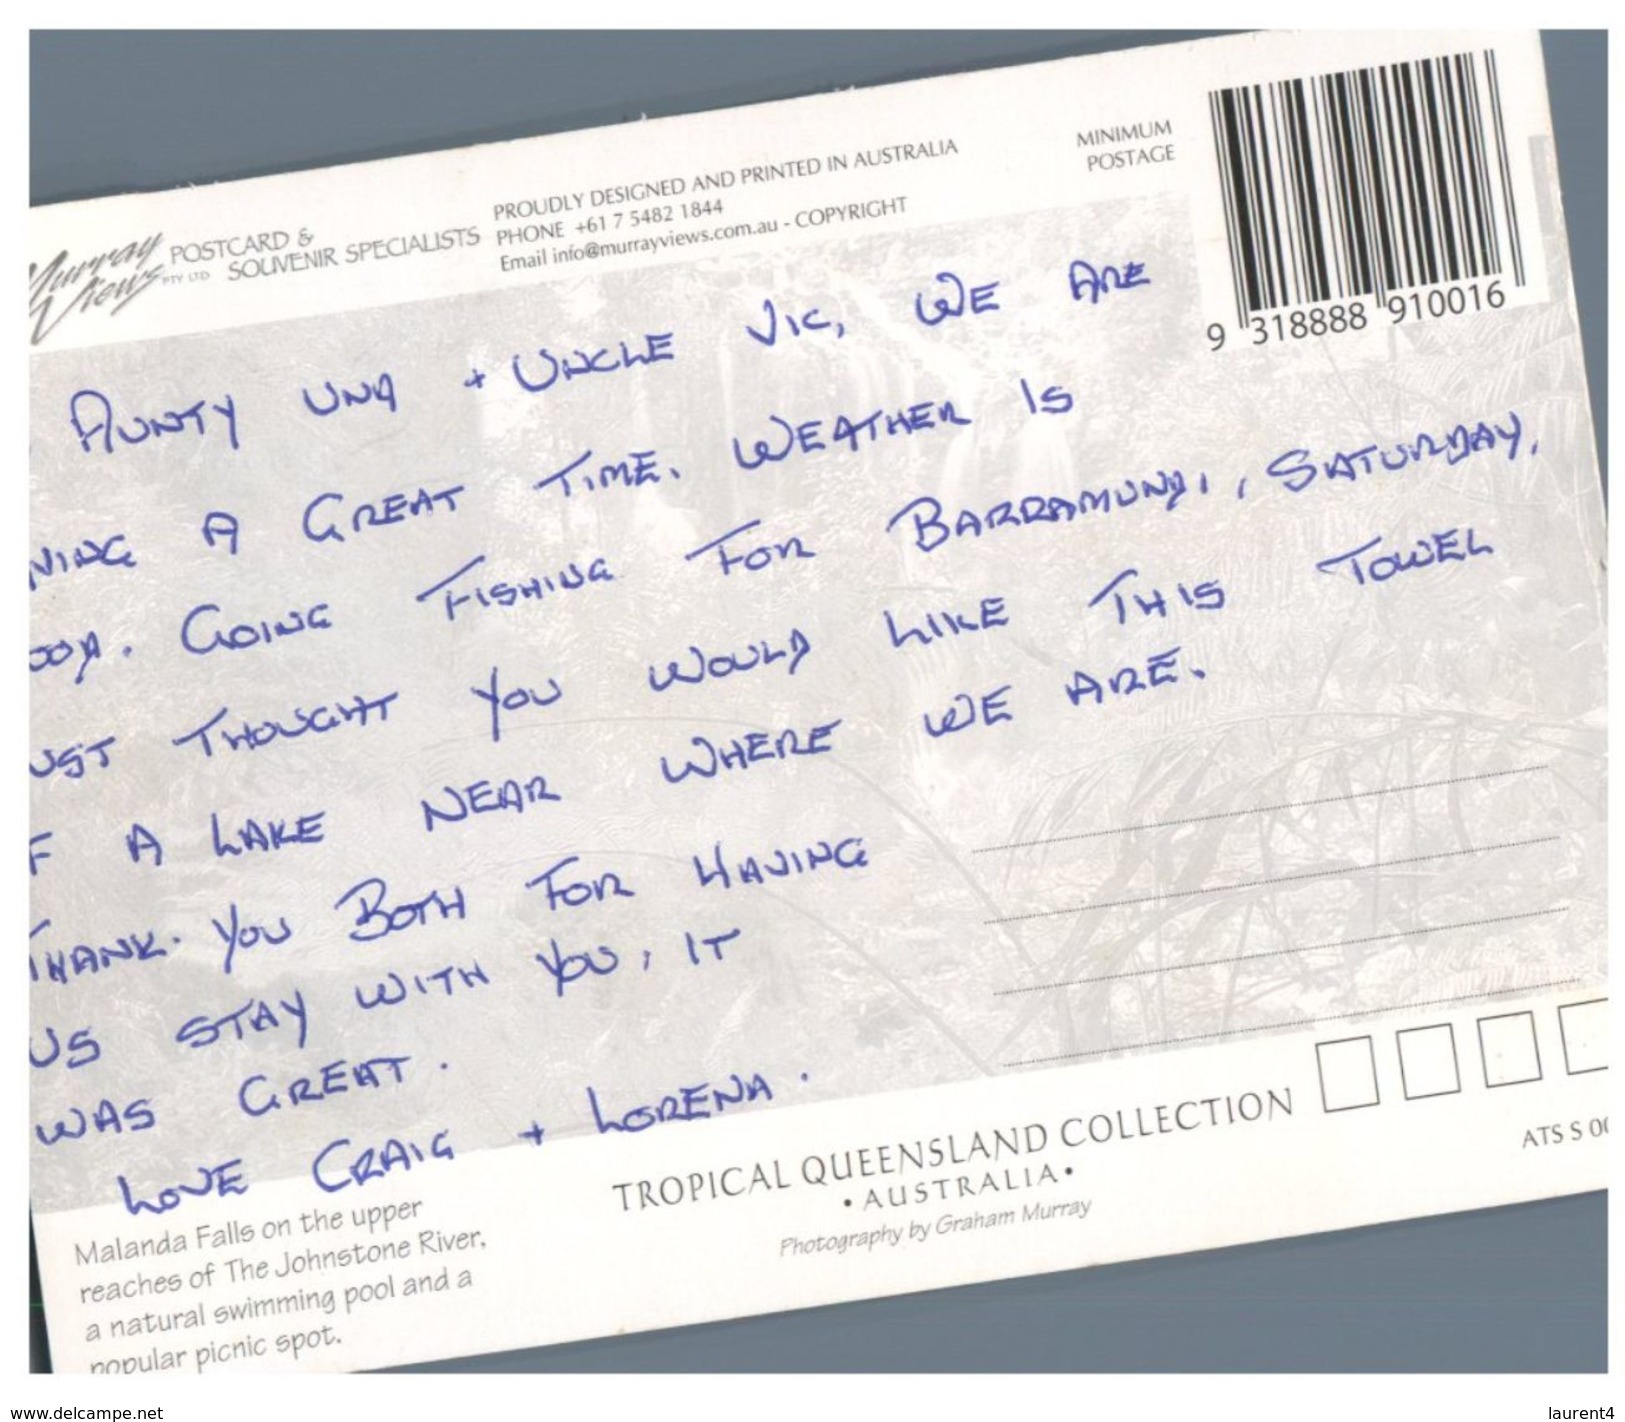 Murray Views PTY LTD
POSTCARD & SOUVENIR SPECIALISTS
PROUDLY DESIGNED AND PRINTED IN AUSTRALIA
PHONE +61 7 5482 1844
Email info@murrayviews.com.au - COPYRIGHT
MINIMUM
POSTAGE
9 318888 910016
AUNTY UNA + UNCLE VIC, WE ARE
VING A GREAT TIME. WEATHER IS
OOD. GOING FISHING FOR BARRAMUNDI, SATURDAY.
UST THOUGHT YOU WOULD LIKE THIS TOWEL
F A LAKE NEAR WHERE WE ARE.
THANK YOU BOTH FOR HAVING
US STAY WITH YOU, IT
WAS GREAT.
LOVE CRAIG + LORENA.
Malanda Falls on the upper
reaches of The Johnstone River,
a natural swimming pool and a
popular picnic spot.
TROPICAL QUEENSLAND COLLECTION
• AUSTRALIA •
Photography by Graham Murray
ATS S 00
www.delcampe.net
laurent4